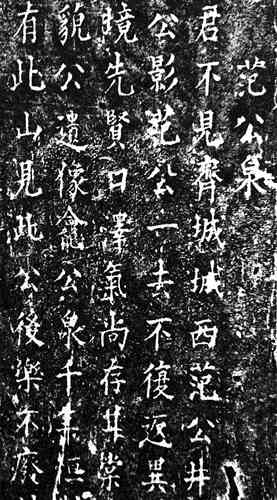 范公泉
君不見齊城城西范公井
公影范公一去不復返異
先賢口澤氣尚存甘棠
貌公遺像公泉千
有此山見此公後樂不廢